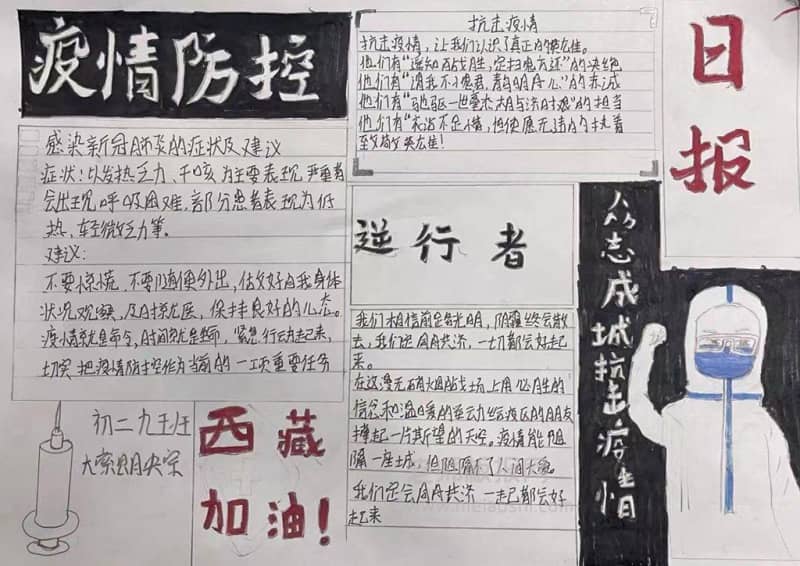 疫情防控
日报
抗击疫情
抗击疫情，让我们认识了真正的英雄。
他们有"遥知百战胜，定扫鬼方还"的决绝
他们有"须我不小君，青山明月心"的赤诚
他们有"驰驱一世豪杰相与济时艰"的担当
他们有"衣沾不足惜，但使愿无违的执着
致敬英雄！
感染新冠肺炎的症状及建议
症状：以发热乏力、干咳为主要表现，严重者
会出现呼吸困难，部分患者表现为低
热、轻微乏力等。
建议：
不要惊慌，不要随便外出，估好自我身体
状况观察，及时就医，保持良好的心态。
疫情就是命令，时间就是生命，紧急行动起来，
切实把疫情防控作为当前的一项重要任务
逆行者
我们相信前是光明，阴霾终会散
去，我们定会共济，一切都会好起
来。
在这漫无硝烟战场上用必胜的
信念和温暖的举动给疫区的朋友
撑起一片斯望的天空，疫情能阻
隔一座城，但阻隔不了人间大爱。
我们定会共济 一起都会好
起来
众志成城抗击疫情
初二九班
西藏
加油！